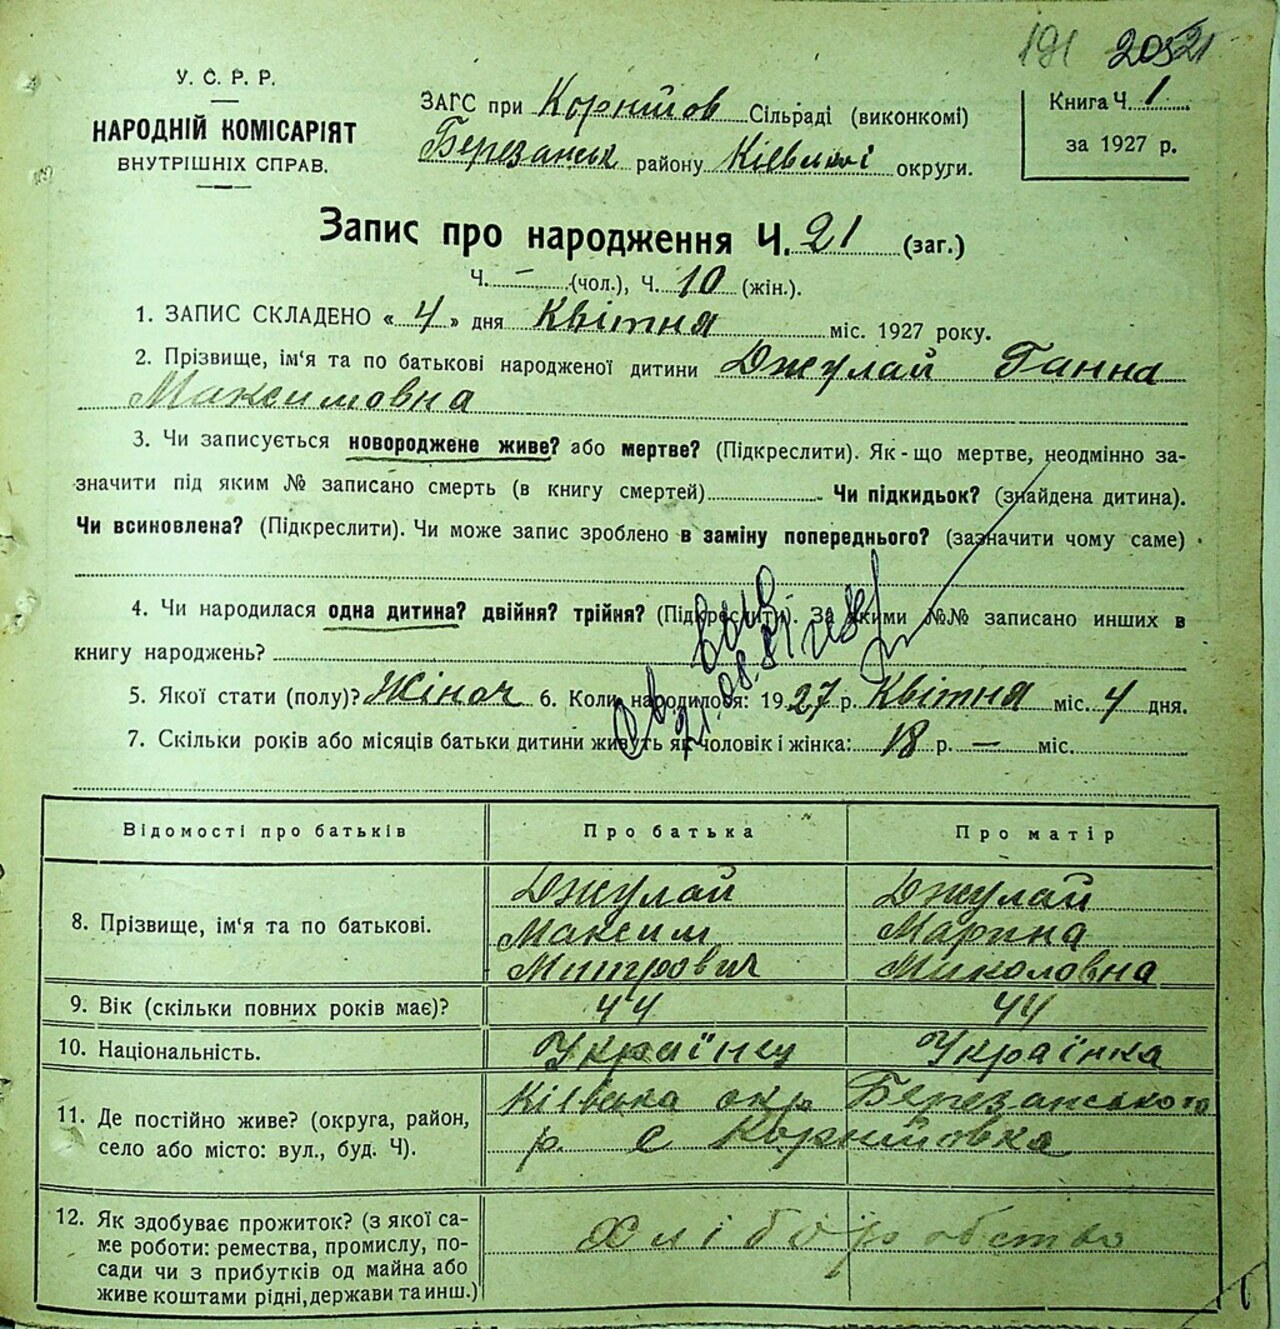 191 20521
У. С. Р. Р.
НАРОДНІЙ КОМІСАРІЯТ
ВНУТРІШНІХ СПРАВ.
ЗАГС при Корнийов Сільраді (виконкомі)
Березанськ району Київської округи.
Книга Ч. 1
за 1927 р.
Запис про народження Ч. 21 (заг.)
Ч. – (чол.), Ч. 10 (жін.).
1. ЗАПИС СКЛАДЕНО « 4 » дня Квітня міс. 1927 року.
2. Прізвище, ім'я та по батькові народженої дитини Джулай Ганна
Максимовна
3. Чи записується новороджене живе? або мертве? (Підкреслити). Як-що мертве, неодмінно за-
значити під яким № записано смерть (в книгу смертей) Чи підкидьок? (знайдена дитина).
Чи всиновлена? (Підкреслити). Чи може запис зроблено в заміну попереднього? (зазначити чому саме)
4. Чи народилася одна дитина? двійня? трійня? (Підкреслити). За якими №№ записано инших в
книгу народжень?
5. Якої стати (полу)? Жіноч 6. Коли народилося: 1927 р. Квітня міс. 4 дня.
7. Скільки років або місяців батьки дитини живуть як чоловік і жінка: 18 р. — міс.
21.08.81
Відомості про батьків Про батька Про матір
8. Прізвище, ім'я та по батькові.
Джулай Джулай
Максим Марина
Митрович Миколовна
9. Вік (скільки повних років має)? 44 44
10. Національність. Українец Українка
11. Де постійно живе? (округа, район,
село або місто: вул., буд. Ч).
Кіівська окр Березанського
р. с Корнийовка
12. Як здобуває прожиток? (з якої са-
ме роботи: ремества, промислу, по-
сади чи з прибутків од майна або
живе коштами рідні, держави та инш.)
Хліборобство